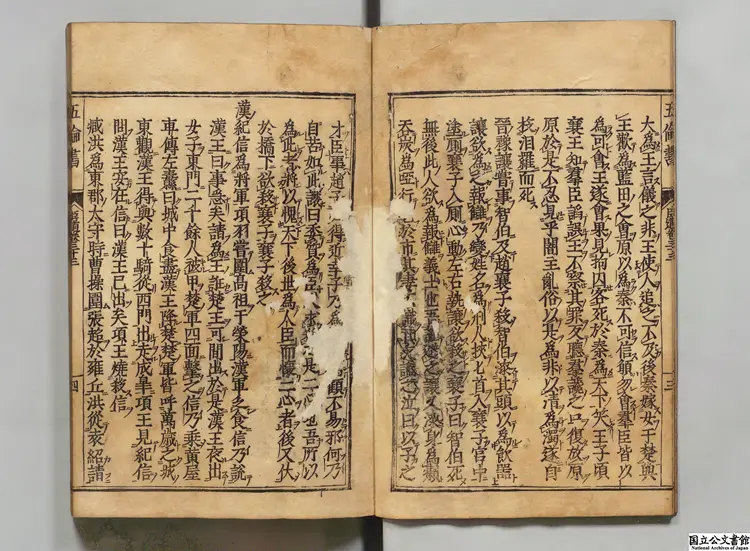 五倫書
三
大為王言儀之非王使人追之不及後秦嫁女于楚與
王歡為藍田之會原以為秦不可信願勿會羣臣皆以
為可會王遂會果見拘囚客死於秦為天下笑王子頃
襄王知羣臣諂誤王不察其罪反聽羣讒之口復放原
原於是不忍見乎闇王亂俗以是為非以清為濁遂自
投汨羅而死
晉豫讓嘗事智伯及趙襄子殺智伯漆其頭以為飲噐
讓欲為之報讎乃變姓名為刑人挾匕首入襄子宮中
塗厠襄子入厠心動左右執讓欲殺之襄子曰智伯死
無後此人欲為報讎義士也吾謹避之讓又漆身為癩
吞炭為啞行乞於市其妻不識其友識之泣曰以子之
才臣事趙子得近幸子乃為顧不易邪何乃
自苦如此讓曰委質為臣求是二心也吾所以
為此者將以愧天下後世為人臣而懷二心者後又伏
於橋下欲殺襄子襄子殺之
漢紀信為將軍項羽嘗圍高祖于榮陽漢軍乏食信乃說
漢王曰事急矣請為王誑楚王可間出於是漢王夜出
女子東門二千餘人被甲楚軍四面擊之信乃乘黃屋
車傅左纛曰城中食盡漢王降楚楚軍皆呼萬歲之城
東觀漢王得與數十騎從西門出走成皐項王見紀信
問漢王安在信曰漢王已出矣項王燒殺信
臧洪為東郡太守時曹操圍張超於雍丘洪從袁紹請
五倫書
四
国立公文書館
National Archives of Japan